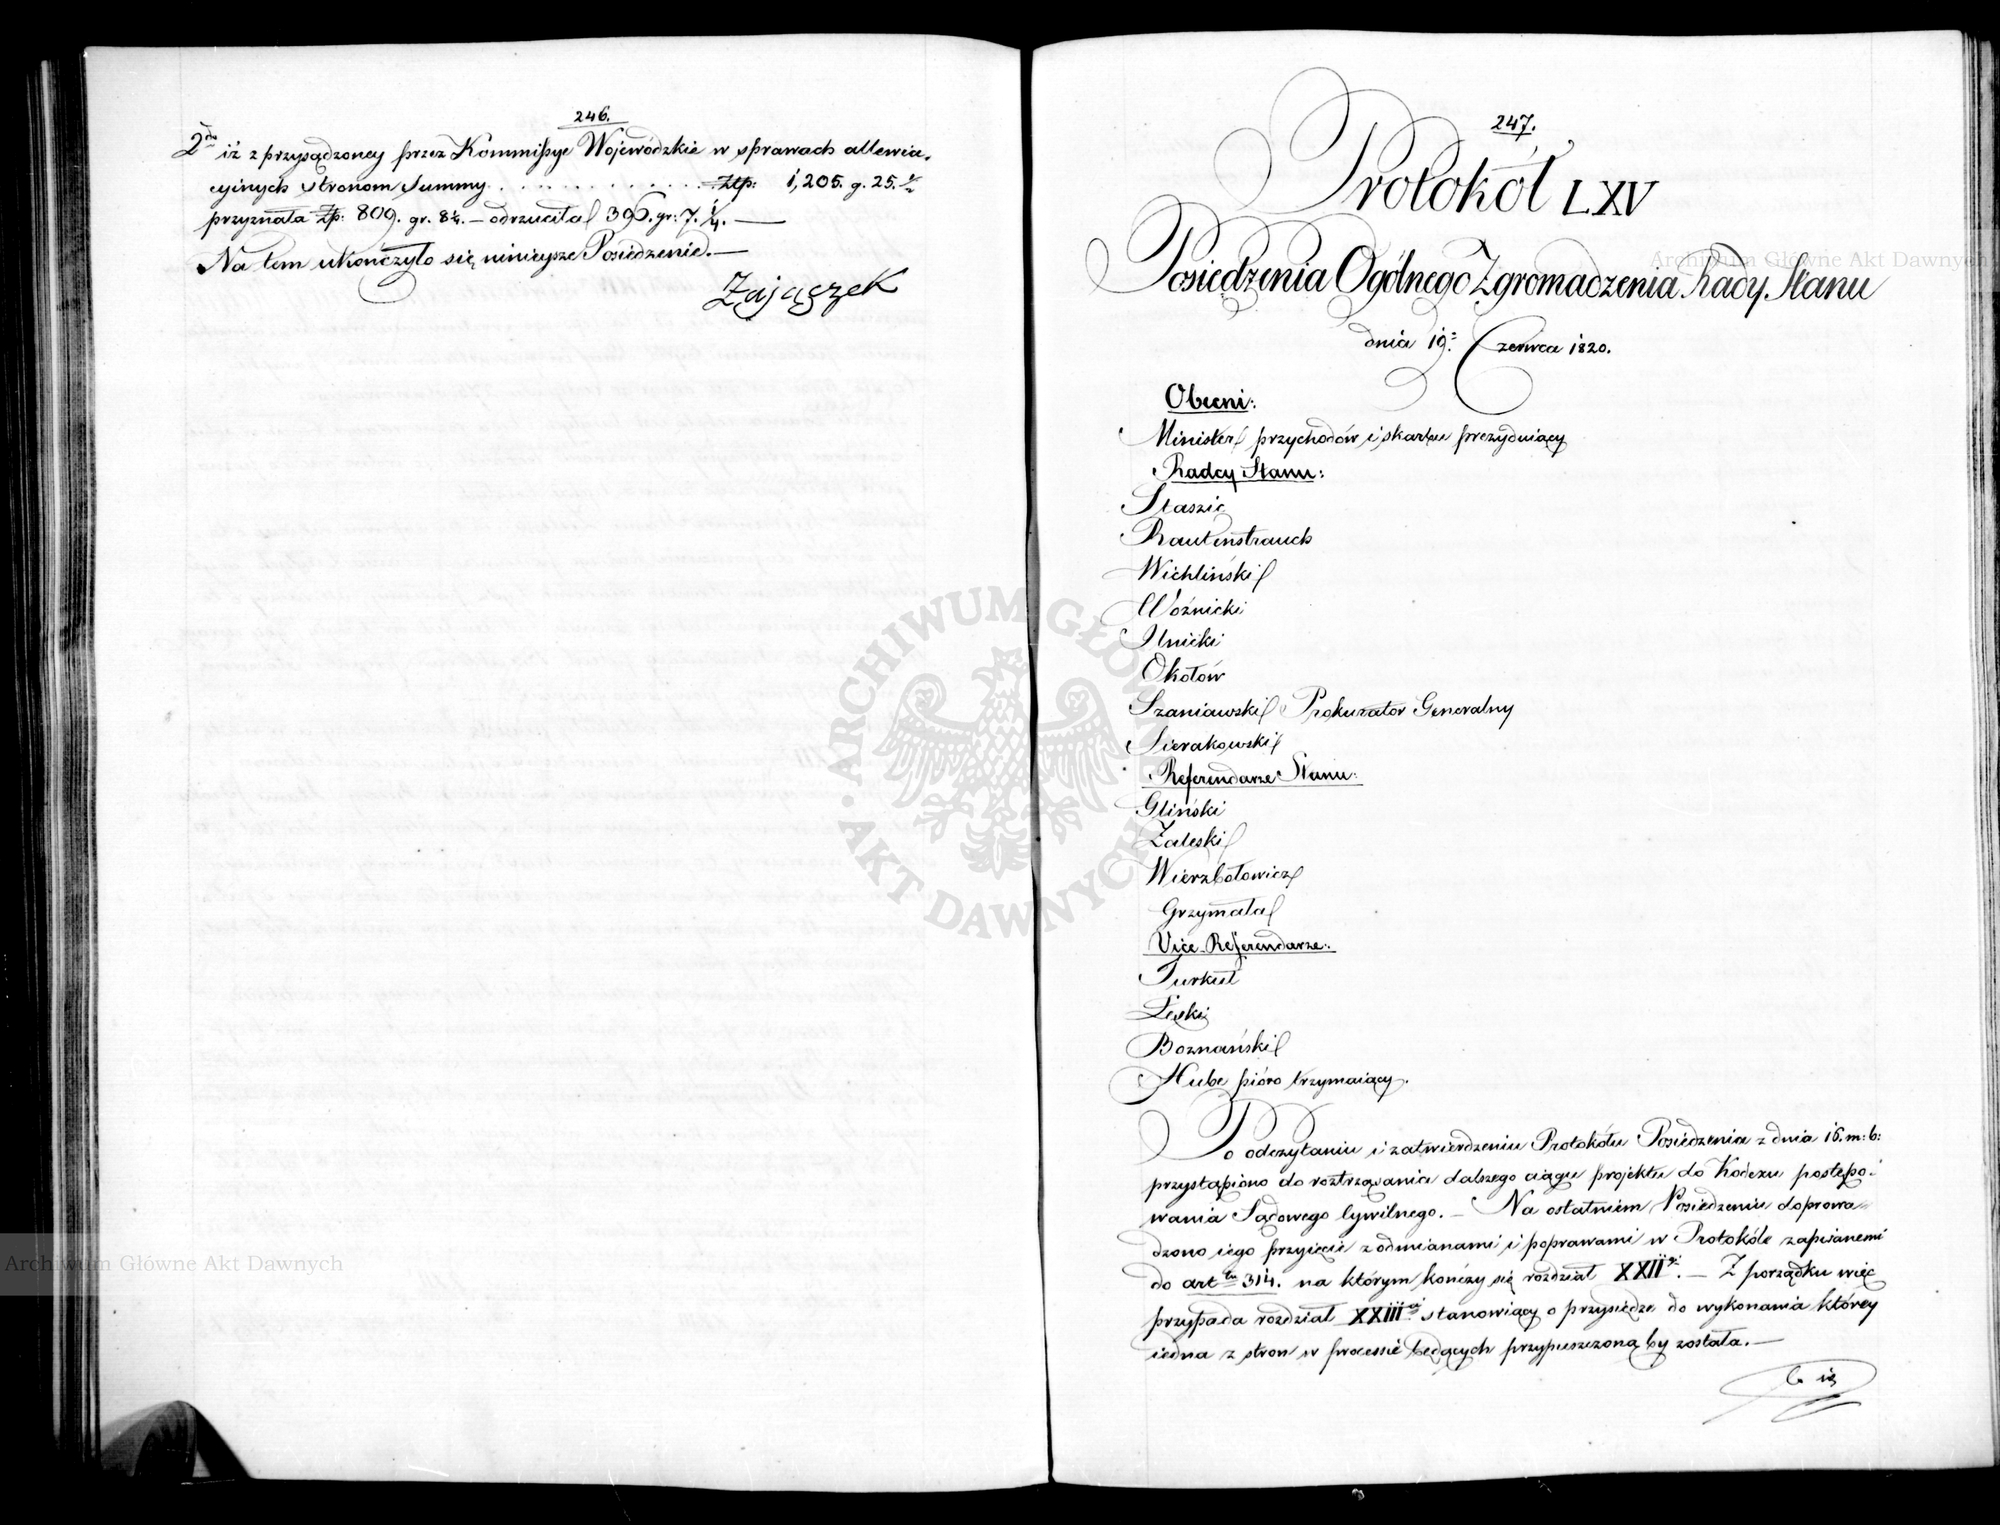 246.
2do iż z przysądzoney przez Kommissye Wojewódzkie w sprawach allewia-
cyinych stronom Summy . . . . . . . . . . . . Złp: 1,205. g. 25. ½
przyznała złp: 809. gr. 8¼. — odrzuciła 396. gr: 7. ¼. —
Na tem ukończyło się ninieysze Posiedzenie. —
Zajączek
247.
Protokół LXV
Posiedzenia Ogólnego Zgromadzenia Rady Stanu
dnia 19. Czerwca 1820.
Obecni:
Minister przychodów i skarbu prezyduiący
Radcy Stanu:
Staszic
Rautenstrauch
Wichliński
Woźnicki
Ilnicki
Okołów
Szaniawski Prokurator Generalny
Sierakowski
Referendarze Stanu:
Gliński
Zaleski
Wierzbołowicz
Grzymała
Vice-Referendarze:
Turkuł
Łęski
Boznański
Hube pióro trzymaiący.
Po odczytaniu i zatwierdzeniu Protokółu Posiedzenia z dnia 16. m: b:
przystąpiono do roztrząsania dalszego ciągu projektu do Kodexu postępo-
wania Sądowego Cywilnego. — Na ostatniem Posiedzeniu doprowa-
dzono iego przyięcie z odmianami i poprawami w Protokóle zapisanemi
do art łu 314. na którym kończy się rozdział XXIIgi. — Z porządku więc
przypada rozdział XXIIIci stanowiący o przysiędze do wykonania którey
iedna z stron w processie będących przypuszczoną by została. —
Archiwum Główne Akt Dawnych
Archiwum Główne Akt Dawnych
ARCHIWUM GŁÓWNE AKT DAWNYCH